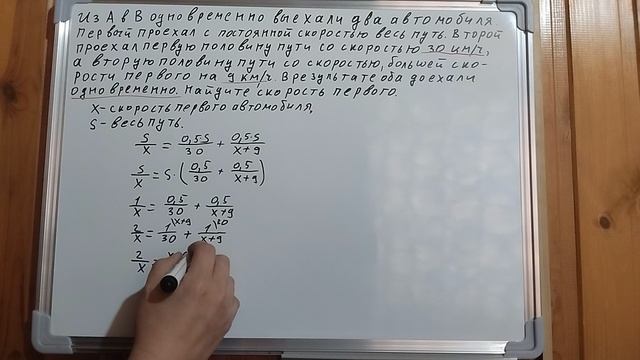 Из А в В одновременно выехали два автомобиля.
Первый проехал с постоянной скоростью весь путь. Второй
проехал первую половину пути со скоростью 30 км/ч,
а вторую половину пути со скоростью, большей ско-
рости первого на 9 км/ч. В результате оба доехали
одновременно. Найдите скорость первого.
х - скорость первого автомобиля,
S - весь путь.
S/x = 0,5S/30 + 0,5·S/x+9
S/x = S·(0,5/30 + 0,5/x+9)
1/x = 0,5/30 + 0,5/x+9
2/x = 1\x+9/30 + 1\30/x+9
2/x =